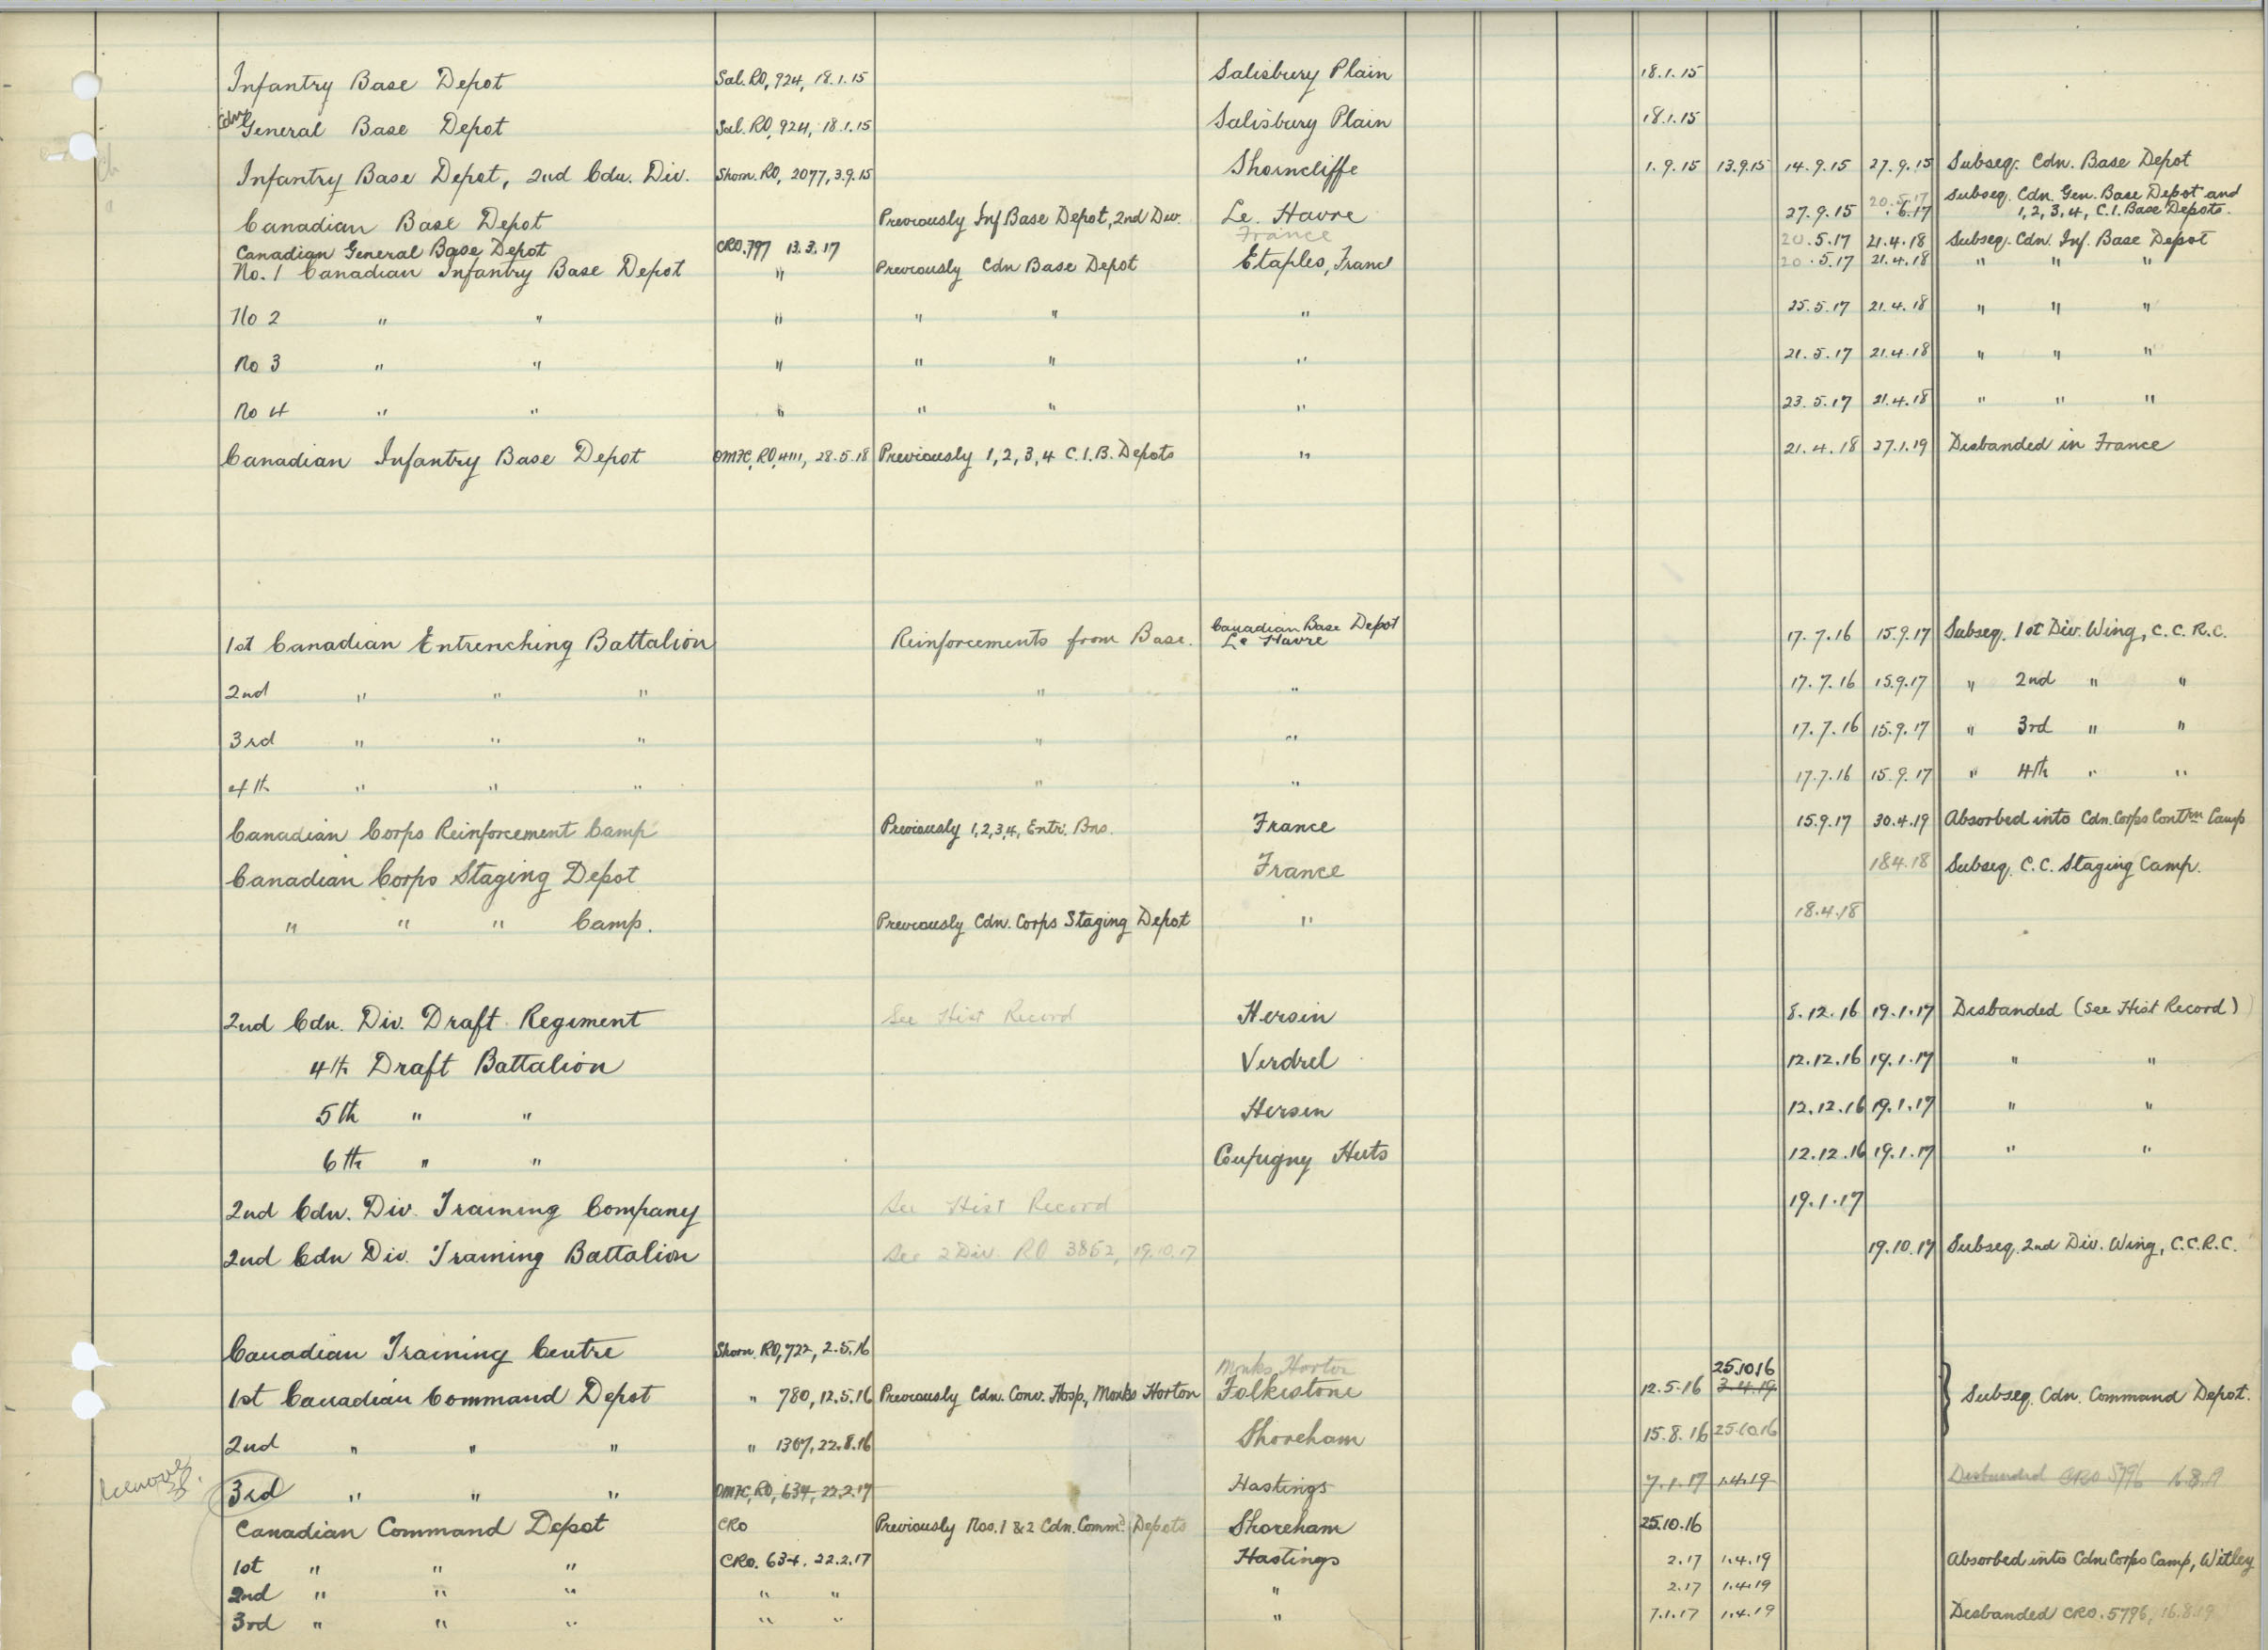 Infantry Base Depot Sal. RO, 924, 18.1.15 Salisbury Plain 18.1.15
Cdn General Base Depot Sal. RO, 924, 18.1.15 Salisbury Plain 18.1.15
Infantry Base Depot, 2nd Cdn. Div. Shorn. RO, 2077, 3.9.15 Shorncliffe 1.9.15 13.9.15 14.9.15 27.9.15 Subseq. Cdn. Base Depot
Canadian Base Depot Previously Inf Base Depot, 2nd Div. Le Havre 27.9.15 20.5.17 .6.17 Subseq. Cdn. Gen. Base Depot and
1,2,3,4, C.I. Base Depots.
Canadian General Base Depot CRO.797 13.3.17 France 20.5.17 21.4.18 Subseq. Cdn. Inf. Base Depot
No. 1 Canadian Infantry Base Depot " Previously Cdn Base Depot Etaples, France 20.5.17 21.4.18 " " "
No 2 " " " " " " 25.5.17 21.4.18 " " "
No 3 " " " " " " 21.5.17 21.4.18 " " "
No 4 " " " " " " 23.5.17 21.4.18 " " "
Canadian Infantry Base Depot OMFC, RO, 4111, 28.5.18 Previously 1,2,3,4 C.I.B. Depots " 21.4.18 27.1.19 Disbanded in France
1st Canadian Entrenching Battalion Reinforcements from Base. Canadian Base Depot
Le Havre 17.7.16 15.9.17 Subseq. 1st Div. Wing, C.C.R.C.
2nd " " " " " 17.7.16 15.9.17 " 2nd " "
3rd " " " " " 17.7.16 15.9.17 " 3rd " "
4th " " " " " 17.7.16 15.9.17 " 4th " "
Canadian Corps Reinforcement Camp Previously 1,2,3,4, Entr. Bns. France 15.9.17 30.4.19 Absorbed into Cdn. Corps Contrn Camp
Canadian Corps Staging Depot France 18.4.18 Subseq. C.C. Staging Camp.
" " " Camp. Previously Cdn. Corps Staging Depot " 18.4.18
2nd Cdn. Div. Draft Regiment See Hist Record Hersin 8.12.16 19.1.17 Disbanded (See Hist Record)
4th Draft Battalion Verdrel 12.12.16 19.1.17 " "
5th " " Hersin 12.12.16 19.1.17 " "
6th " " Coupigny Huts 12.12.16 19.1.17 " "
2nd Cdn. Div. Training Company See Hist Record 19.1.17
2nd Cdn Div. Training Battalion See 2 Div. RO 3852, 19.10.17 19.10.17 Subseq. 2nd Div. Wing, C.C.R.C.
Canadian Training Centre Shorn. RO, 722, 2.5.16
1st Canadian Command Depot " 780, 12.5.16 Previously Cdn. Conv. Hosp, Monks Horton Monks Horton Folkestone 12.5.16 25.10.16 3.4.19 Subseq. Cdn. Command Depot.
2nd " " " " 1307, 22.8.16 Shoreham 15.8.16 25.10.16
3rd " " " OMFC, RO, 634, 22.2.17 Hastings 7.1.17 1.4.19 Disbanded CRO 5796 16.8.19
Canadian Command Depot CRO Previously Nos. 1 & 2 Cdn. Commd. Depots Shoreham 25.10.16
1st " " " CRO. 634. 22.2.17 Hastings 2.17 1.4.19 Absorbed into Cdn. Corps Camp, Witley
2nd " " " " " " 2.17 1.4.19
3rd " " " " " " 7.1.17 1.4.19 Disbanded CRO. 5796, 16.8.19